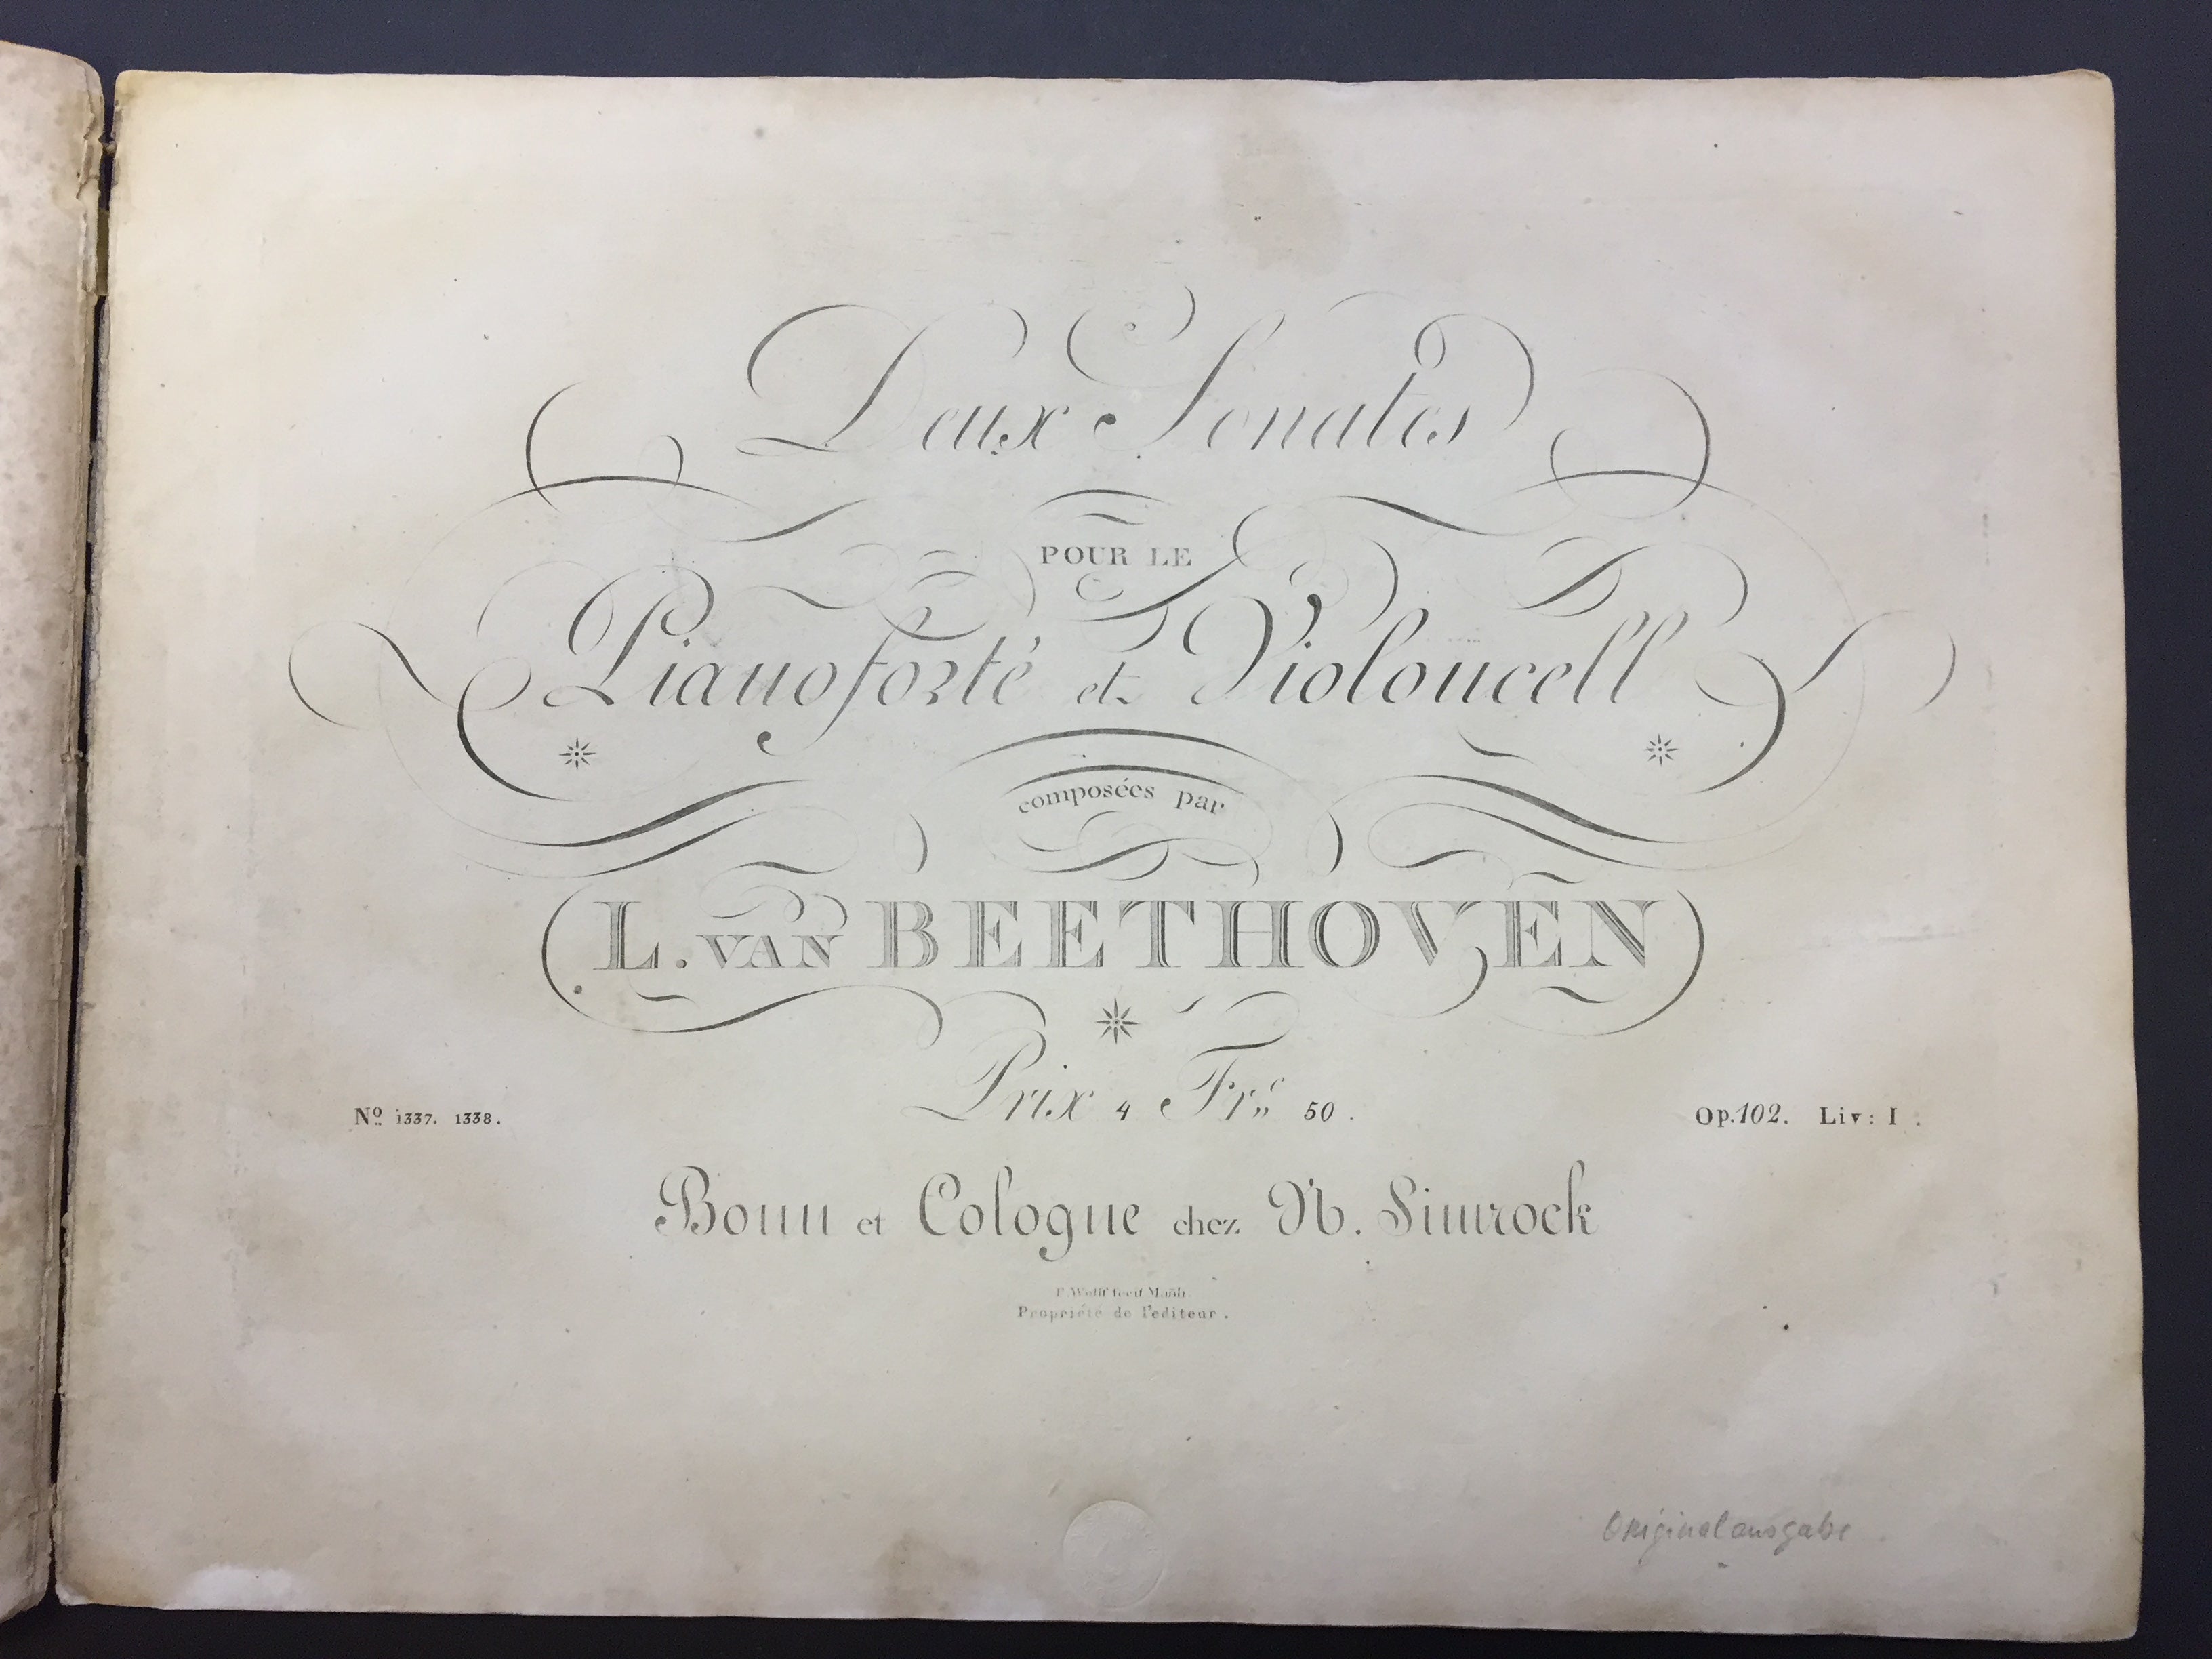 Deux Sonates
POUR LE
Pianoforté et Violoncell
composées par
L. VAN BEETHOVEN
Prix 4 Frcs 50.
No 1337. 1338.
Op. 102. Liv: I.
Bonn et Cologne chez N. Simrock
F. Wolff fecit Manh.
Propriété de l'editeur.
Originalausgabe